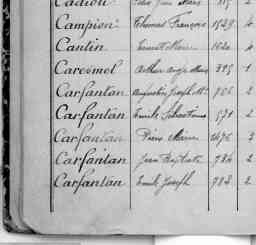 Cadiou
Campion Thomas François 1529 4
Cantin Ernest Marie 1620 4
Caresmel Arthur 395 1
Carfantan Augustin Joseph Mie 766 2
Carfantan Emile Sébastien 571 2
Carfantan Pierre Marie 1476 3
Carfantan Jean Baptiste 734 2
Carfantan Emile Joseph 783 2